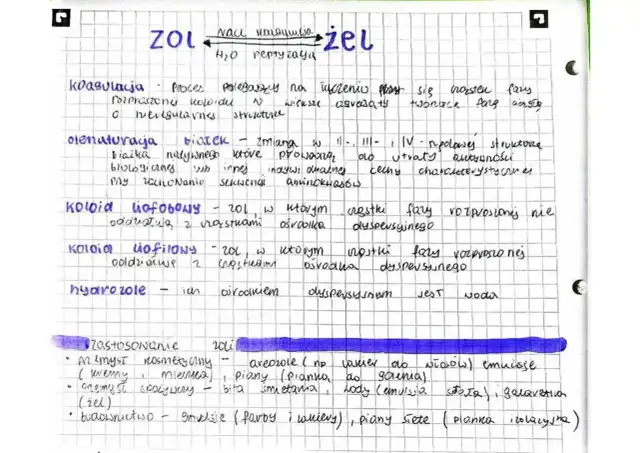 ZOL NaCl koagulacja ŻEL
H₂O peptyzacja
koagulacja - proces polegający na łączeniu się cząstek fazy
rozproszonej koloidu w większe agregaty tworzące fazę ciągłą
o nieregularnej strukturze
denaturacja białek - zmiana w II-, III- i IV-rzędowej strukturze
białka natywnego które prowadzą do utraty aktywności
biologicznej lub innej indywidualnej cechy charakterystycznej
przy zachowaniu sekwencji aminokwasów
koloid liofobowy - zol, w którym cząstki fazy rozproszonej nie
oddziałują z cząstkami ośrodka dyspersyjnego
koloid liofilowy - zol, w którym cząstki fazy rozproszonej
oddziałuje z cząstkami ośrodka dyspersyjnego
hydrozole - ich ośrodkiem dyspersyjnym jest woda
zastosowanie zoli
• przemysł kosmetyczny - areozole (np lakier do włosów) emulsje
(kremy, mleczka), piany (pianka do golenia)
• przemysł spożywczy - bita śmietana, lody (emulsja stała), galaretka
(żel)
• budownictwo - emulsje (farby i lakiery), piany stałe (pianka izolacyjna)